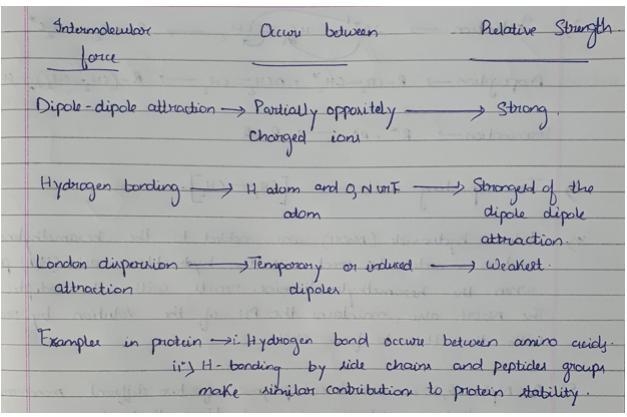 Intermolecular Occurs between Relative Strength.
force
Dipole-dipole attraction → Partially oppositely → Strong.
Charged ions
Hydrogen bonding → H atom and O, N or F → Strongest of the
atom dipole dipole
attraction.
London dispersion → Temporary or induced → Weakest.
attraction dipoles
Examples in protein → i. Hydrogen bond occurs between amino acids.
ii) H-bonding by side chains and peptides groups
make similar contribution to protein stability.